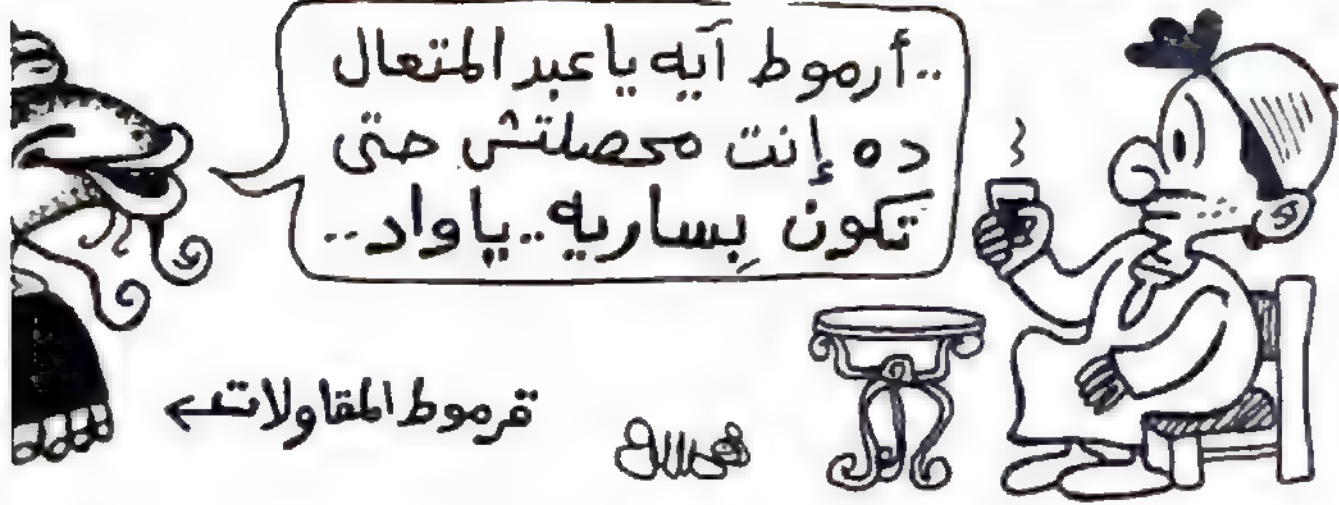 ..أرموط آيه ياعبد المتعال
ده إنت محصلتش حتى
تكون بِساريه..ياواد..
قرموط المقاولات